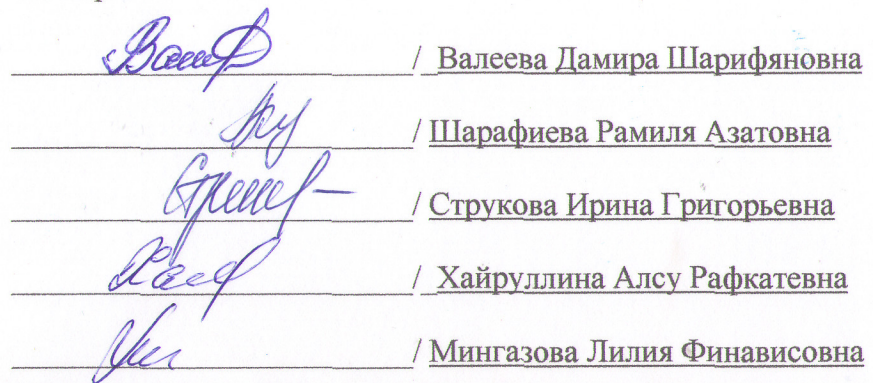 / Валеева Дамира Шарифяновна
/ Шарафиева Рамиля Азатовна
/ Струкова Ирина Григорьевна
/ Хайруллина Алсу Рафкатевна
/ Мингазова Лилия Финависовна